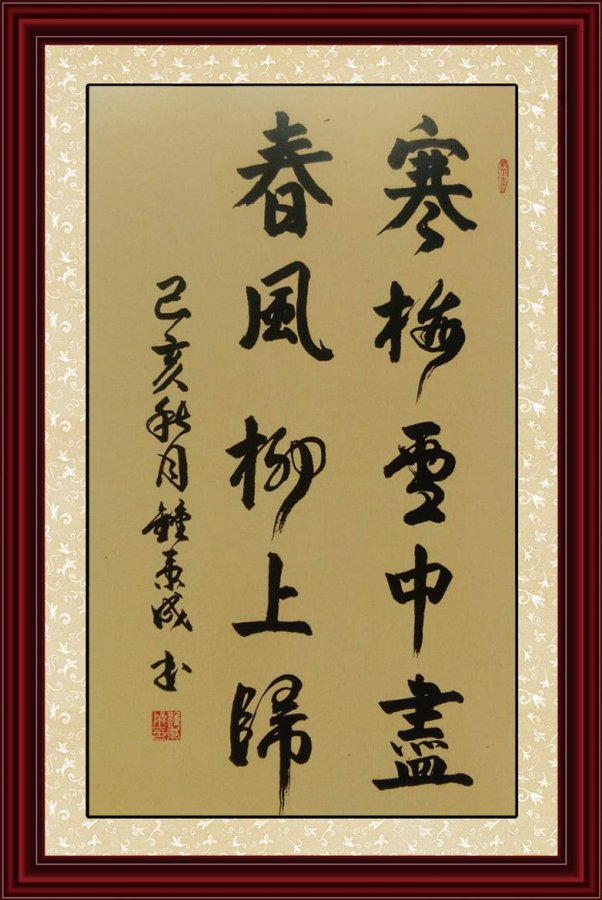 寒梅雪中盡
春風柳上歸
己亥秋月鍾景成书